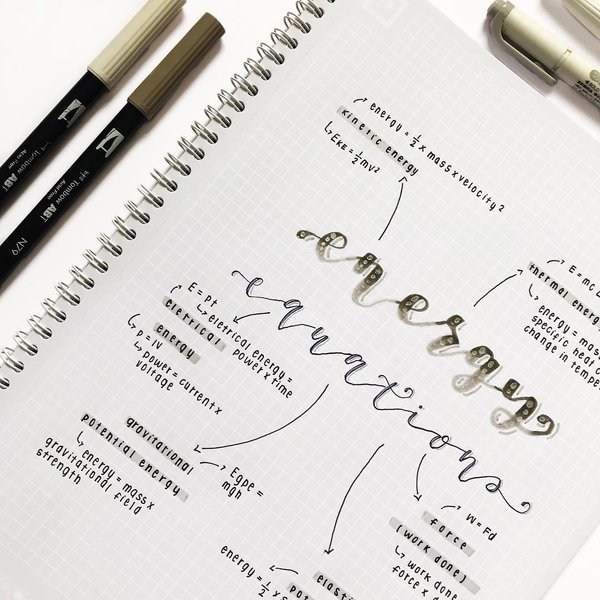 energy = 1/2 x mass x velocity 2
kinetic energy
EKE = 1/2 mv²
energy
equations
E = mc
thermal energy
energy = mass
specific heat
change in
E = pt
eletrical energy =
power x time
eletrical
energy
p = IV
power = current x
voltage
gravitational
potential energy
energy = mass x
gravitational field
strength
Egpe =
mgh
W = Fd
force
(work done)
work done
force x
elastic
energy = 1/2 x
Tombow ABT
N79
Tombow ABT